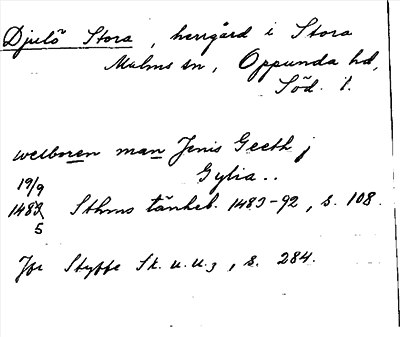 Djulö Stora, herrgård i Stora
Malms sn, Oppunda hd,
Söd. l.
welboren man Jenis Geeth j
Gylia..
19/9
1483 Sthms tänkeb. 1483-92, s. 108.
5
Jfr Styffe Sk. u. u. 3, s. 284.